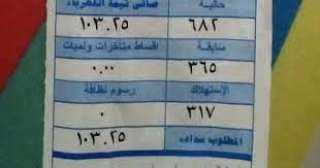 حالية صافي قيمة الكهرباء
٦٨٢ ١٠٣.٢٥
سابقة اقساط متأخرات ولمبات
٣٦٥ ٠.٠٠
الإستهلاك رسوم نظافة
٣١٧ ٠
المطلوب سداده ١٠٣.٢٥